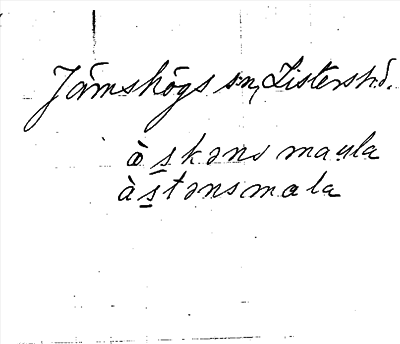 Jämshögs sn, Listers hd.
àskəns mau̯la
àstənsmala